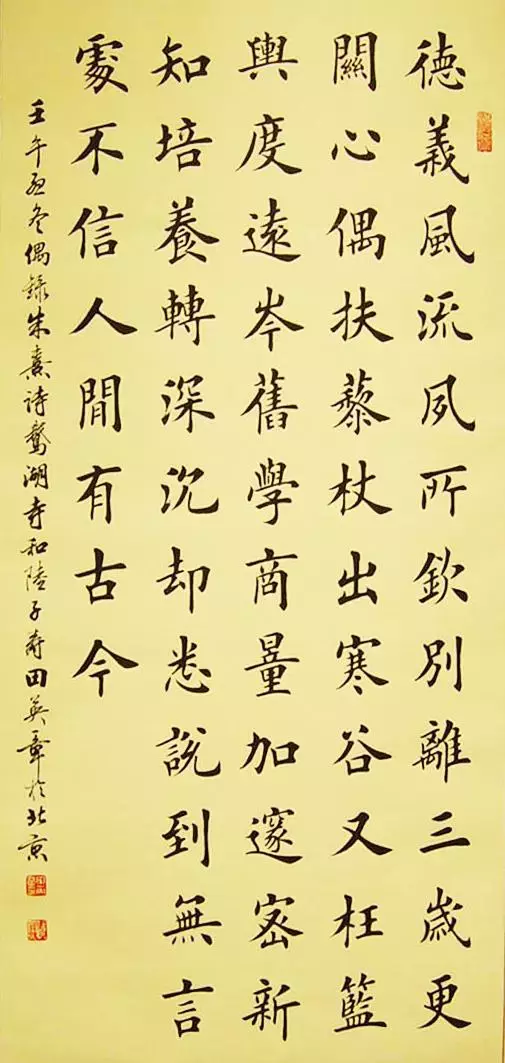 德義風流夙所欽別離三歲更
關心偶扶藜杖出寒谷又枉籃
輿度遠岑舊學商量加邃密新
知培養轉深沉却悉說到無言
處不信人間有古今
壬午孟冬偶録朱熹詩鵞湖寺和陸子壽田英章於北京